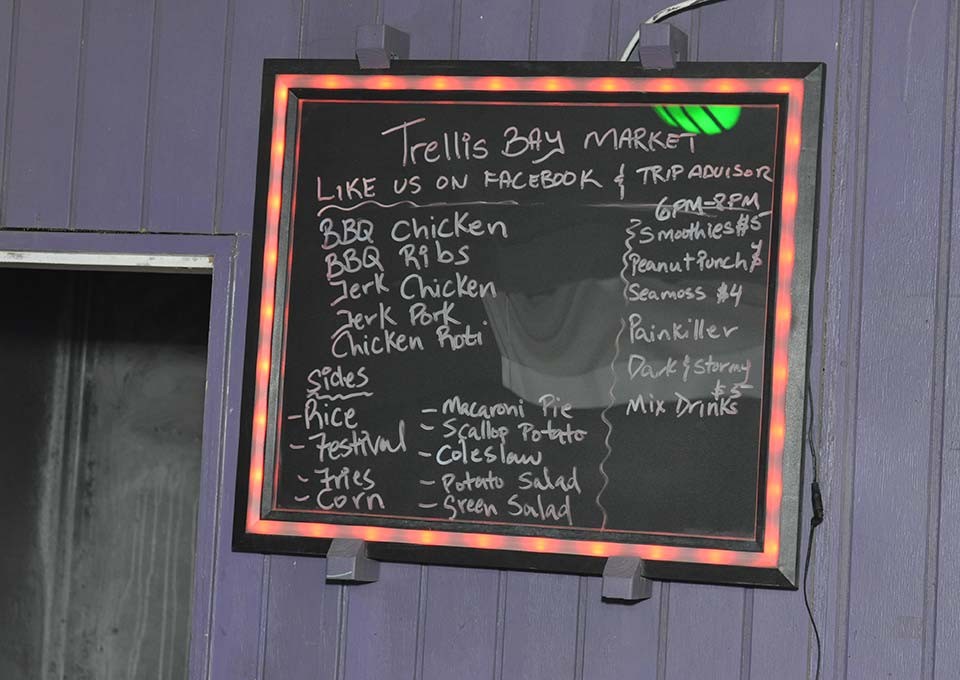 Trellis BAY MARKET
LIKE US ON FACEBOOK & TRIP ADVISOR
6PM-8PM
BBQ Chicken
BBQ Ribs
Jerk Chicken
Jerk Pork
Chicken Roti
Sides
- Rice
- Festival
- Fries
- Corn
- Macaroni Pie
- Scallop Potato
- Coleslaw
- Potato Salad
- Green Salad
Smoothies $5
Peanut Punch
Seamoss $4
Painkiller
Dark & Stormy
$5
Mix Drinks